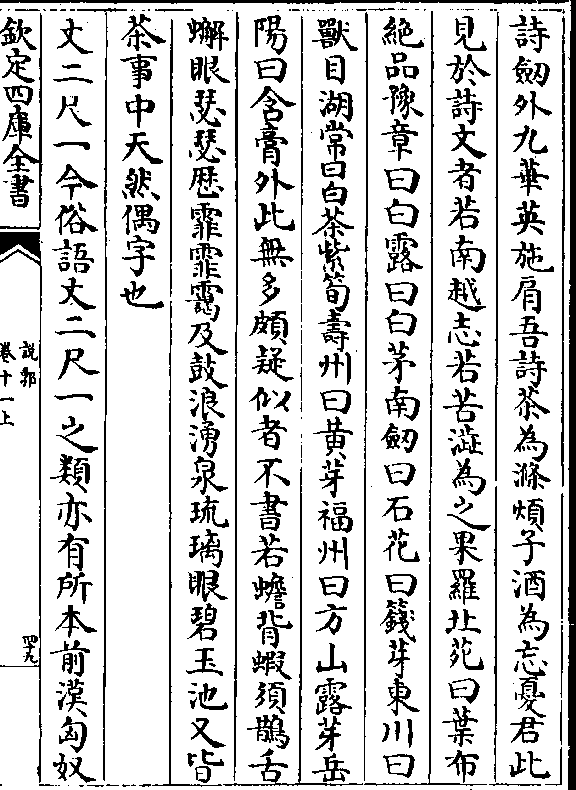 詩劒外九華英施肩吾詩茶為滌煩子酒為忘憂君此
見於詩文者若南越志若苦澁為之果羅北苑曰葉布
絶品豫章曰白露曰白茅南劒曰石花曰籛芽東川曰
獸目湖常曰白茶紫筍夀州曰黄芽福州曰方山露芽岳
陽曰含膏外此無多頗疑似者不書若蟾背蝦須鵲舌
蠏眼瑟瑟厯霏霏靄及鼓浪湧泉琉璃眼碧玉池又皆
茶事中天然偶字也
丈二尺一今俗語丈二尺一之類亦有所本前漢匈奴
欽定四庫全書
說郛
卷十一上
四十九